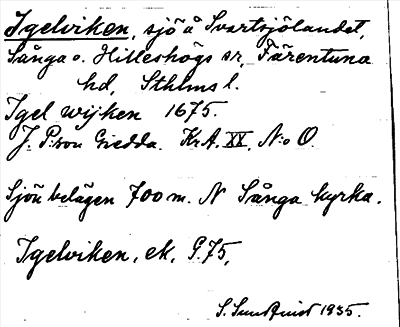 Igelviken, sjö å Svartsjölandet,
Sånga o. Hilleshögs sr, Färentuna
hd, Sthlms l.
Igel wijken 1675.
J. P:son Gedda. KrA. XX, N:o O.
Sjön belägen 700 m. N Sånga kyrka.
Igelviken, ek. G.75,
S. Sundquist 1935.